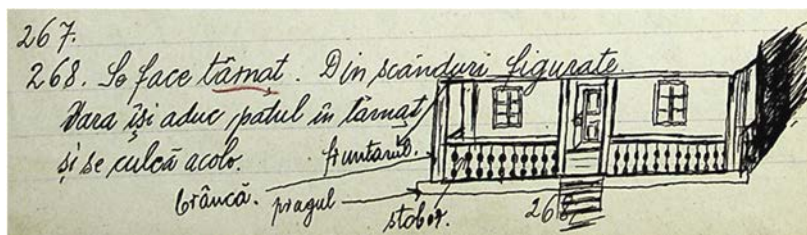 267.
268. Se face târnat. Din scânduri figurate
Vara își aduc patul în târnaț
și se culcă acolo.
fruntariul.
brâncă.
pragul
stobor.
268.